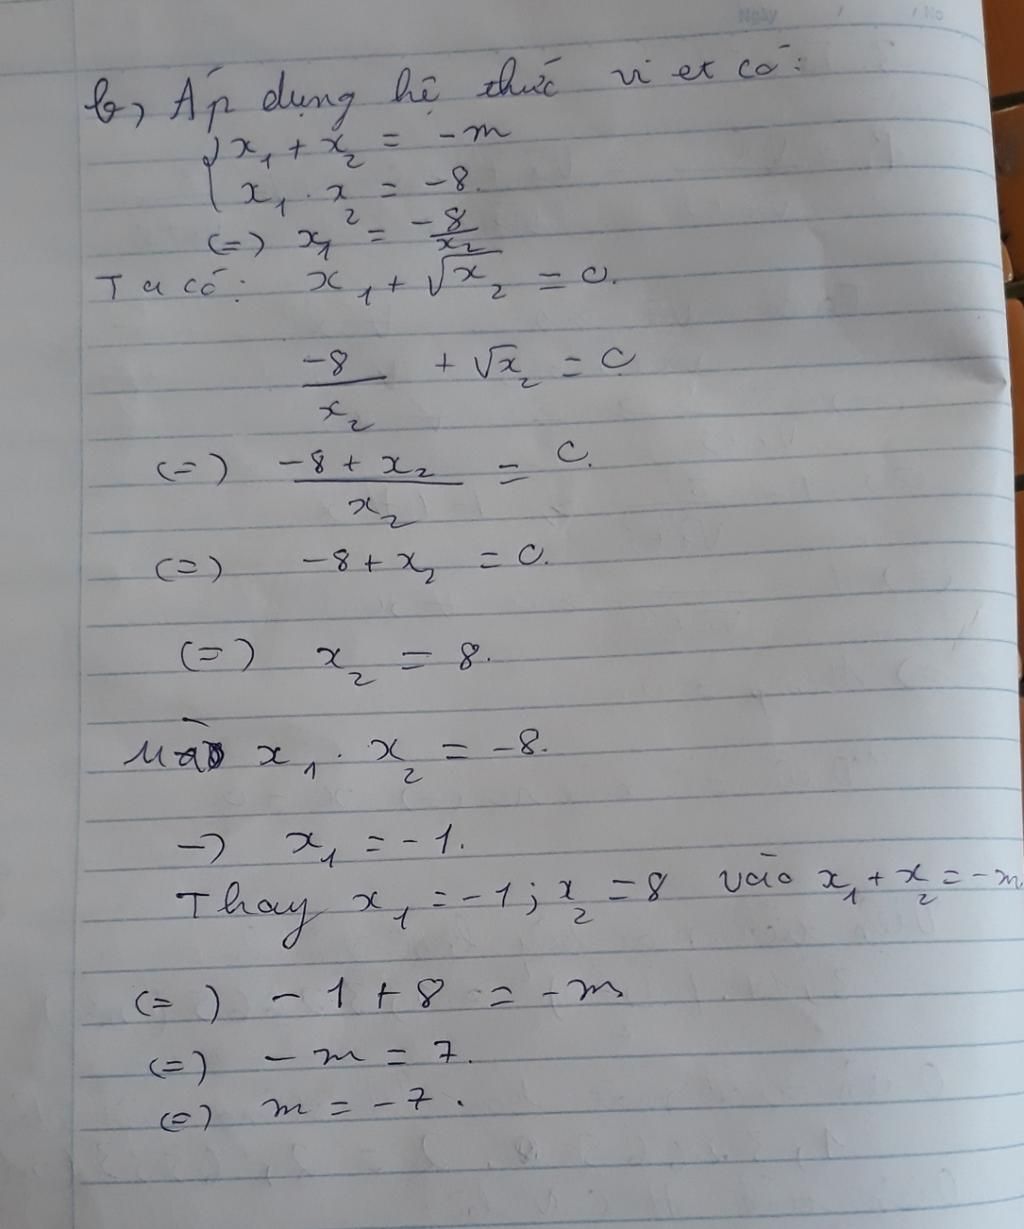 Ngày / / No
b, Áp dụng hệ thức vi et có:
{ x₁ + x₂ = -m
x₁ . x₂ = -8.
(=) x₁ = -8/x₂
Ta có: x₁ + √x₂ = 0.
-8/x₂ + √x₂ = 0
(=) (-8 + x₂)/x₂ = 0.
(=) -8 + x₂ = 0.
(=) x₂ = 8.
Mà x₁ . x₂ = -8.
→ x₁ = -1.
Thay x₁ = -1; x₂ = 8 vào x₁ + x₂ = -m
(=) -1 + 8 = -m
(=) -m = 7.
(=) m = -7.